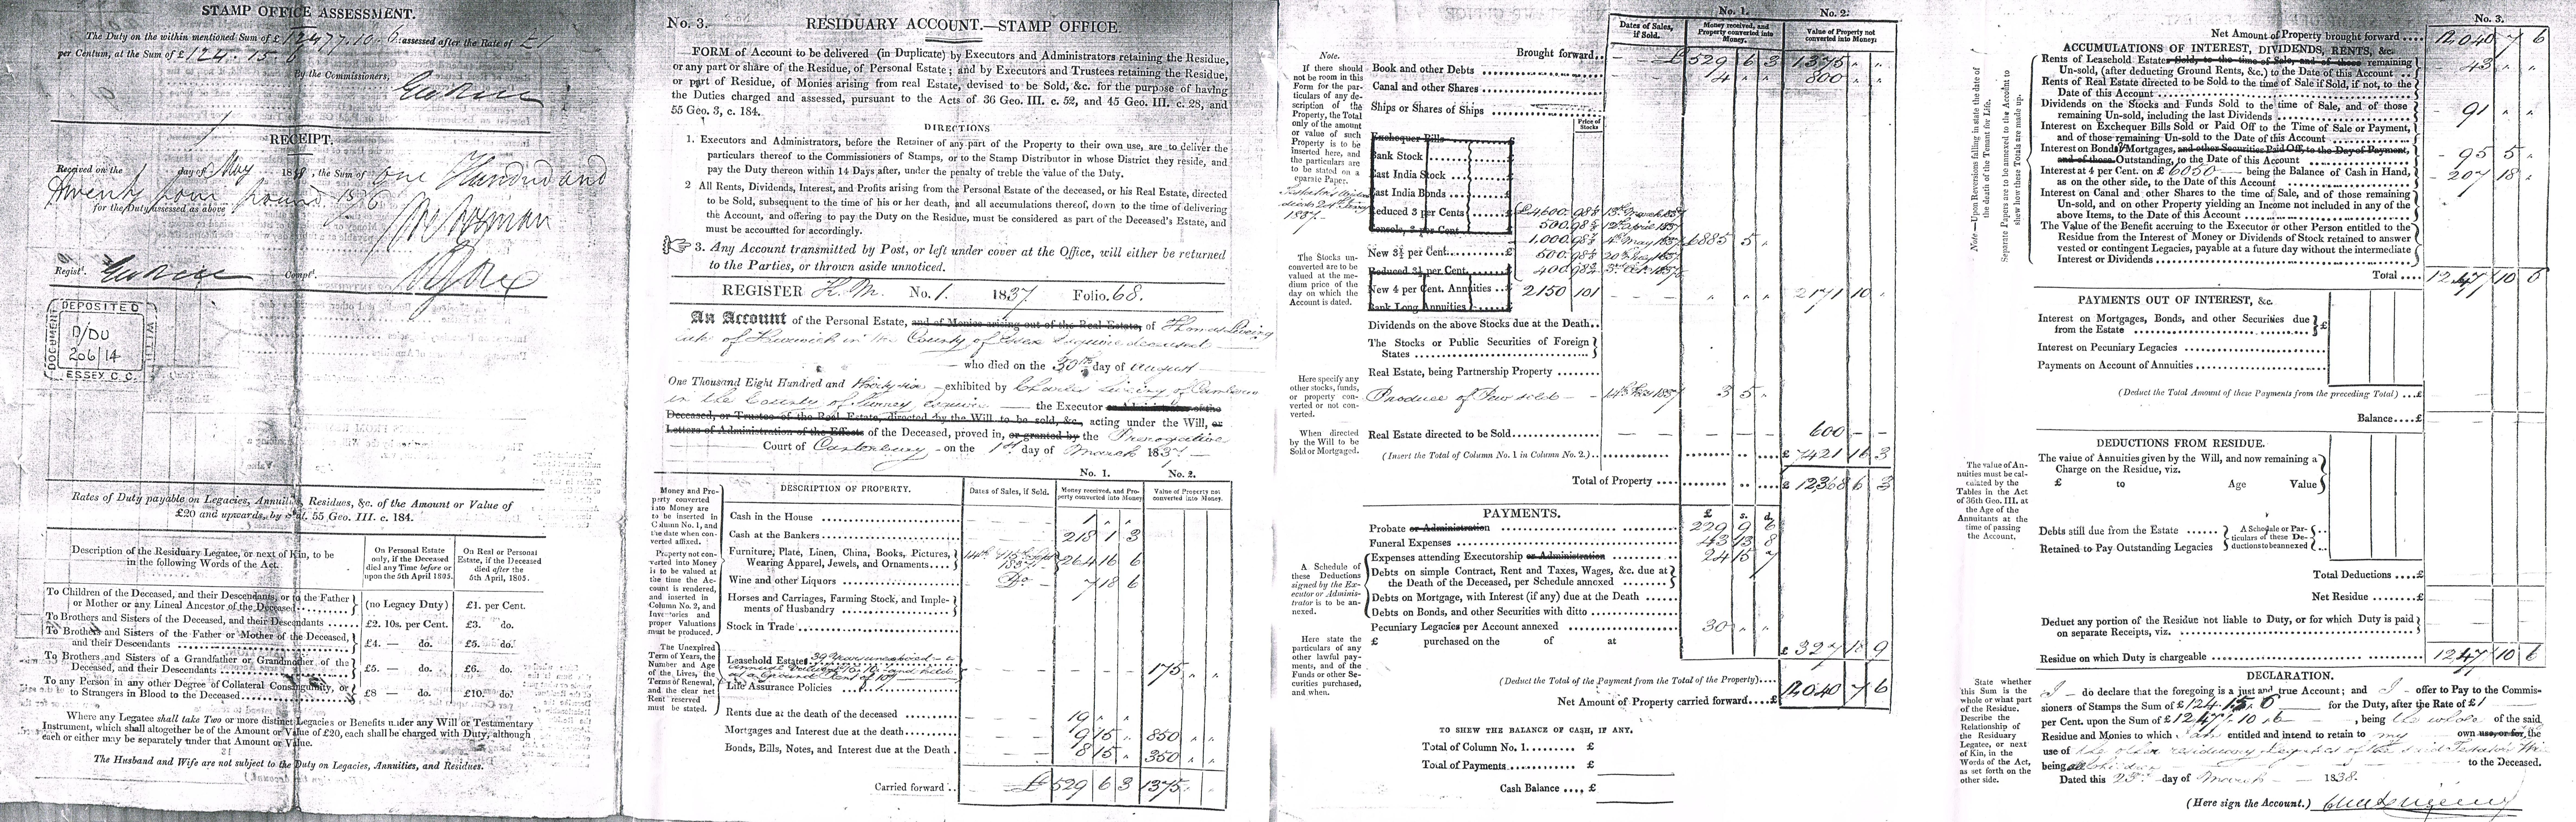 STAMP OFFICE ASSESSMENT.
The Duty on the within mentioned Sum of £ 12477.10.6 assessed after the Rate of £1
per Centum, at the Sum of £ 124.15.6
By the Commissioners,
RECEIPT.
Received on the day of May 1838, the Sum of One Hundred and
twenty four pound 15/6
for the Duty assessed as above
Registr. Compt.
DEPOSITED
D/DU
206/14
ESSEX C.C.
DOCUMENT
Rates of Duty payable on Legacies, Annuities, Residues, &c. of the Amount or Value of
£20 and upwards, by Stat. 55 Geo. III. c. 184.
Description of the Residuary Legatee, or next of Kin, to be
in the following Words of the Act.
On Personal Estate
only, if the Deceased
died any Time before or
upon the 5th April 1805.
On Real or Personal
Estate, if the Deceased
died after the
5th April, 1805.
To Children of the Deceased, and their Descendants, or to the Father
or Mother or any Lineal Ancestor of the Deceased (no Legacy Duty) £1. per Cent.
To Brothers and Sisters of the Deceased, and their Descendants £2. 10s. per Cent. £3. do.
To Brothers and Sisters of the Father or Mother of the Deceased,
and their Descendants £4. — do. £5. do.
To Brothers and Sisters of a Grandfather or Grandmother of the
Deceased, and their Descendants £5. — do. £6. do.
To any Person in any other Degree of Collateral Consanguinity, or
to Strangers in Blood to the Deceased £8 — do. £10. do.
Where any Legatee shall take Two or more distinct Legacies or Benefits under any Will or Testamentary
Instrument, which shall altogether be of the Amount or Value of £20, each shall be charged with Duty, although
each or either may be separately under that Amount or Value.
The Husband and Wife are not subject to the Duty on Legacies, Annuities, and Residues.
No. 3. RESIDUARY ACCOUNT.—STAMP OFFICE.
FORM of Account to be delivered (in Duplicate) by Executors and Administrators retaining the Residue,
or any part or share of the Residue, of Personal Estate; and by Executors and Trustees retaining the Residue,
or part of Residue, of Monies arising from real Estate, devised to be Sold, &c. for the purpose of having
the Duties charged and assessed, pursuant to the Acts of 36 Geo. III. c. 52, and 45 Geo. III. c. 28, and
55 Geo. 3, c. 184.
DIRECTIONS
1. Executors and Administrators, before the Retainer of any part of the Property to their own use, are to deliver the
particulars thereof to the Commissioners of Stamps, or to the Stamp Distributor in whose District they reside, and
pay the Duty thereon within 14 Days after, under the penalty of treble the value of the Duty.
2 All Rents, Dividends, Interest, and Profits arising from the Personal Estate of the deceased, or his Real Estate, directed
to be Sold, subsequent to the time of his or her death, and all accumulations thereof, down to the time of delivering
the Account, and offering to pay the Duty on the Residue, must be considered as part of the Deceased's Estate, and
must be accounted for accordingly.
3. Any Account transmitted by Post, or left under cover at the Office, will either be returned
to the Parties, or thrown aside unnoticed.
REGISTER K.M. No. 1. 1837. Folio. 68.
An Account of the Personal Estate, and of Monies arising out of the Real Estate, of Thomas
late of in the County of Essex Esquire deceased
who died on the 30th day of August
One Thousand Eight Hundred and thirty six exhibited by Charles of
in the County of Surrey Esquire the Executor or Administrator of the
Deceased, or Trustee of the Real Estate, directed by the Will to be sold, &c., acting under the Will, or
Letters of Administration of the Effects of the Deceased, proved in, or granted by the Prerogative
Court of Canterbury on the 1st day of March 1837
No. 1. No. 2.
DESCRIPTION OF PROPERTY. Dates of Sales, if Sold. Money received, and Property converted into Money Value of Property not converted into Money.
Money and Property converted into Money are to be inserted in Column No. 1, and the date when converted affixed.
Property not converted into Money is to be valued at the time the Account is rendered, and inserted in Column No. 2, and Inventories and proper Valuations must be produced.
Cash in the House 1 " "
Cash at the Bankers 218 1 3
Furniture, Plate, Linen, China, Books, Pictures,
Wearing Apparel, Jewels, and Ornaments 1837 264 16 6
Wine and other Liquors Do 7 18 6
Horses and Carriages, Farming Stock, and Implements of Husbandry
Stock in Trade
The Unexpired Term of Years, the Number and Age of the Lives, the Terms of Renewal, and the clear net Rent reserved must be stated.
Leasehold Estates 39 Years unexpired 175 " "
Life Assurance Policies
Rents due at the death of the deceased 19 " "
Mortgages and Interest due at the death 9 15 " 850 " "
Bonds, Bills, Notes, and Interest due at the Death 8 15 " 350 " "
Carried forward £ 529 6 3 1375 " "
No. 1. No. 2.
Dates of Sales, if Sold. Money received, and Property converted into Money. Value of Property not converted into Money.
Note.
If there should not be room in this Form for the particulars of any description of the Property, the Total only of the amount or value of such Property is to be inserted here, and the particulars to be stated on a separate Paper.
Brought forward £ 529 6 3 1375 " "
Book and other Debts 14 " " 800 " "
Canal and other Shares
Ships or Shares of Ships
Price of Stocks
Exchequer Bills
Bank Stock
East India Stock
East India Bonds
Reduced 3 per Cents £4600. 13th March 1837
500. 12th April 1837
Consols, 3 per Cent 1,000. 4th May 1837 6885 5 "
New 3½ per Cent. 500.
Reduced 3½ per Cent. 400.
New 4 per Cent. Annities 2150 101 2171 10 "
Bank Long Annuities
The Stocks unconverted are to be valued at the medium price of the day on which the Account is dated.
Dividends on the above Stocks due at the Death
The Stocks or Public Securities of Foreign States
Real Estate, being Partnership Property
Here specify any other stocks, funds, or property converted or not converted.
Produce of Pew sold 1837 3 5 "
When directed by the Will to be Sold or Mortgaged.
Real Estate directed to be Sold 600 - -
(Insert the Total of Column No. 1 in Column No. 2.) £ 7421 16 3
Total of Property £ 12368 6 3
PAYMENTS. £ s. d.
Probate or Administration 229 9 6
Funeral Expenses 43 13 8
Expenses attending Executorship or Administration 24 15 7
A Schedule of these Deductions signed by the Executor or Administrator is to be annexed.
Debts on simple Contract, Rent and Taxes, Wages, &c. due at
the Death of the Deceased, per Schedule annexed
Debts on Mortgage, with Interest (if any) due at the Death
Debts on Bonds, and other Securities with ditto
Pecuniary Legacies per Account annexed 30 " "
Here state the particulars of any other lawful payments, and of the Funds or other Securities purchased, and when.
£ purchased on the of at
£ 327 18 9
(Deduct the Total of the Payment from the Total of the Property)
Net Amount of Property carried forward £ 12040 7 6
TO SHEW THE BALANCE OF CASH, IF ANY.
Total of Column No. 1. £
Total of Payments £
Cash Balance £
No. 3.
Net Amount of Property brought forward 12,040 7 6
Note—Upon Reversions falling in state the date of the death of the Tenant for Life.
Separate Papers are to be annexed to the Account to shew how these Totals are made up.
ACCUMULATIONS OF INTEREST, DIVIDENDS, RENTS, &c.
Rents of Leasehold Estates Sold, to the time of Sale, and of those remaining
Un-sold, (after deducting Ground Rents, &c.) to the Date of this Account 43 " "
Rents of Real Estate directed to be Sold to the time of Sale if Sold, if not, to the
Date of this Account
Dividends on the Stocks and Funds Sold to the time of Sale, and of those
remaining Un-sold, including the last Dividends 91 " "
Interest on Exchequer Bills Sold or Paid Off to the Time of Sale or Payment,
and of those remaining Un-sold to the Date of this Account
Interest on Bonds Mortgages, and other Securities Paid Off, to the Day of Payment,
and of those Outstanding, to the Date of this Account 95 5 "
Interest at 4 per Cent. on £ 6050 being the Balance of Cash in Hand,
as on the other side, to the Date of this Account 207 18 "
Interest on Canal and other Shares to the time of Sale, and of those remaining
Un-sold, and on other Property yielding an Income not included in any of the
above Items, to the Date of this Account
The Value of the Benefit accruing to the Executor or other Person entitled to the
Residue from the Interest of Money or Dividends of Stock retained to answer
vested or contingent Legacies, payable at a future day without the intermediate
Interest or Dividends
Total 12477 10 6
PAYMENTS OUT OF INTEREST, &c.
Interest on Mortgages, Bonds, and other Securities due
from the Estate £
Interest on Pecuniary Legacies
Payments on Account of Annuities
(Deduct the Total Amount of these Payments from the preceding Total) £
Balance £
DEDUCTIONS FROM RESIDUE.
The value of Annuities must be calculated by the Tables in the Act of 36th Geo. III. at the Age of the Annuitants at the time of passing the Account.
The value of Annuities given by the Will, and now remaining a
Charge on the Residue, viz.
£ to Age Value
Debts still due from the Estate
Retained to Pay Outstanding Legacies
A Schedule or Particulars of these Deductions to be annexed
Total Deductions £
Net Residue £
Deduct any portion of the Residue not liable to Duty, or for which Duty is paid
on separate Receipts, viz.
Residue on which Duty is chargeable 12477 10 6
DECLARATION.
State whether this Sum is the whole or what part of the Residue. Describe the Relationship of the Residuary Legatee, or next of Kin, in the Words of the Act, as set forth on the other side.
I do declare that the foregoing is a just and true Account; and I offer to Pay to the Commissioners
of Stamps the Sum of £124.15.6 for the Duty, after the Rate of £1
per Cent. upon the Sum of £12477.10.6, being the whole of the said
Residue and Monies to which I am entitled and intend to retain to my own use, or for the
use of the other residuary Legatees of the said Testator
being to the Deceased.
Dated this day of March 1838.
(Here sign the Account.)